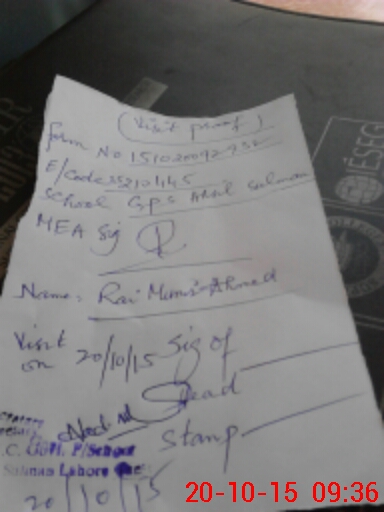 (Visit proof)
Form No
E/Code 35210445
School GPS Ahil Salman
MEA Sig
Name: Rai Munir Ahmed
Visit on 20/10/15 Sig of
Head
Stamp
C. Govt. P/School
Salman Lahore
20/10/15
20-10-15 09:36